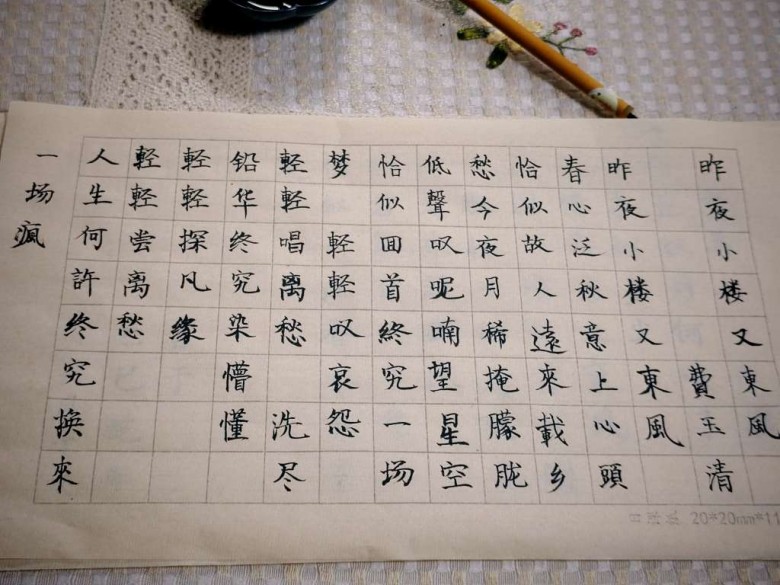 昨夜小楼又東風
費玉清
昨夜小楼又東風
春心泛秋意上心頭
恰似故人遠來載乡
愁今夜月稀掩朦胧
低聲叹呢喃望星空
恰似囬首終究一场
梦 輕輕叹哀怨
輕輕唱离愁 洗尽
铅华终究染懵懂
輕輕探凡缘
輕輕尝离愁
人生何許终究换來
一场瘋
20*20mm*11